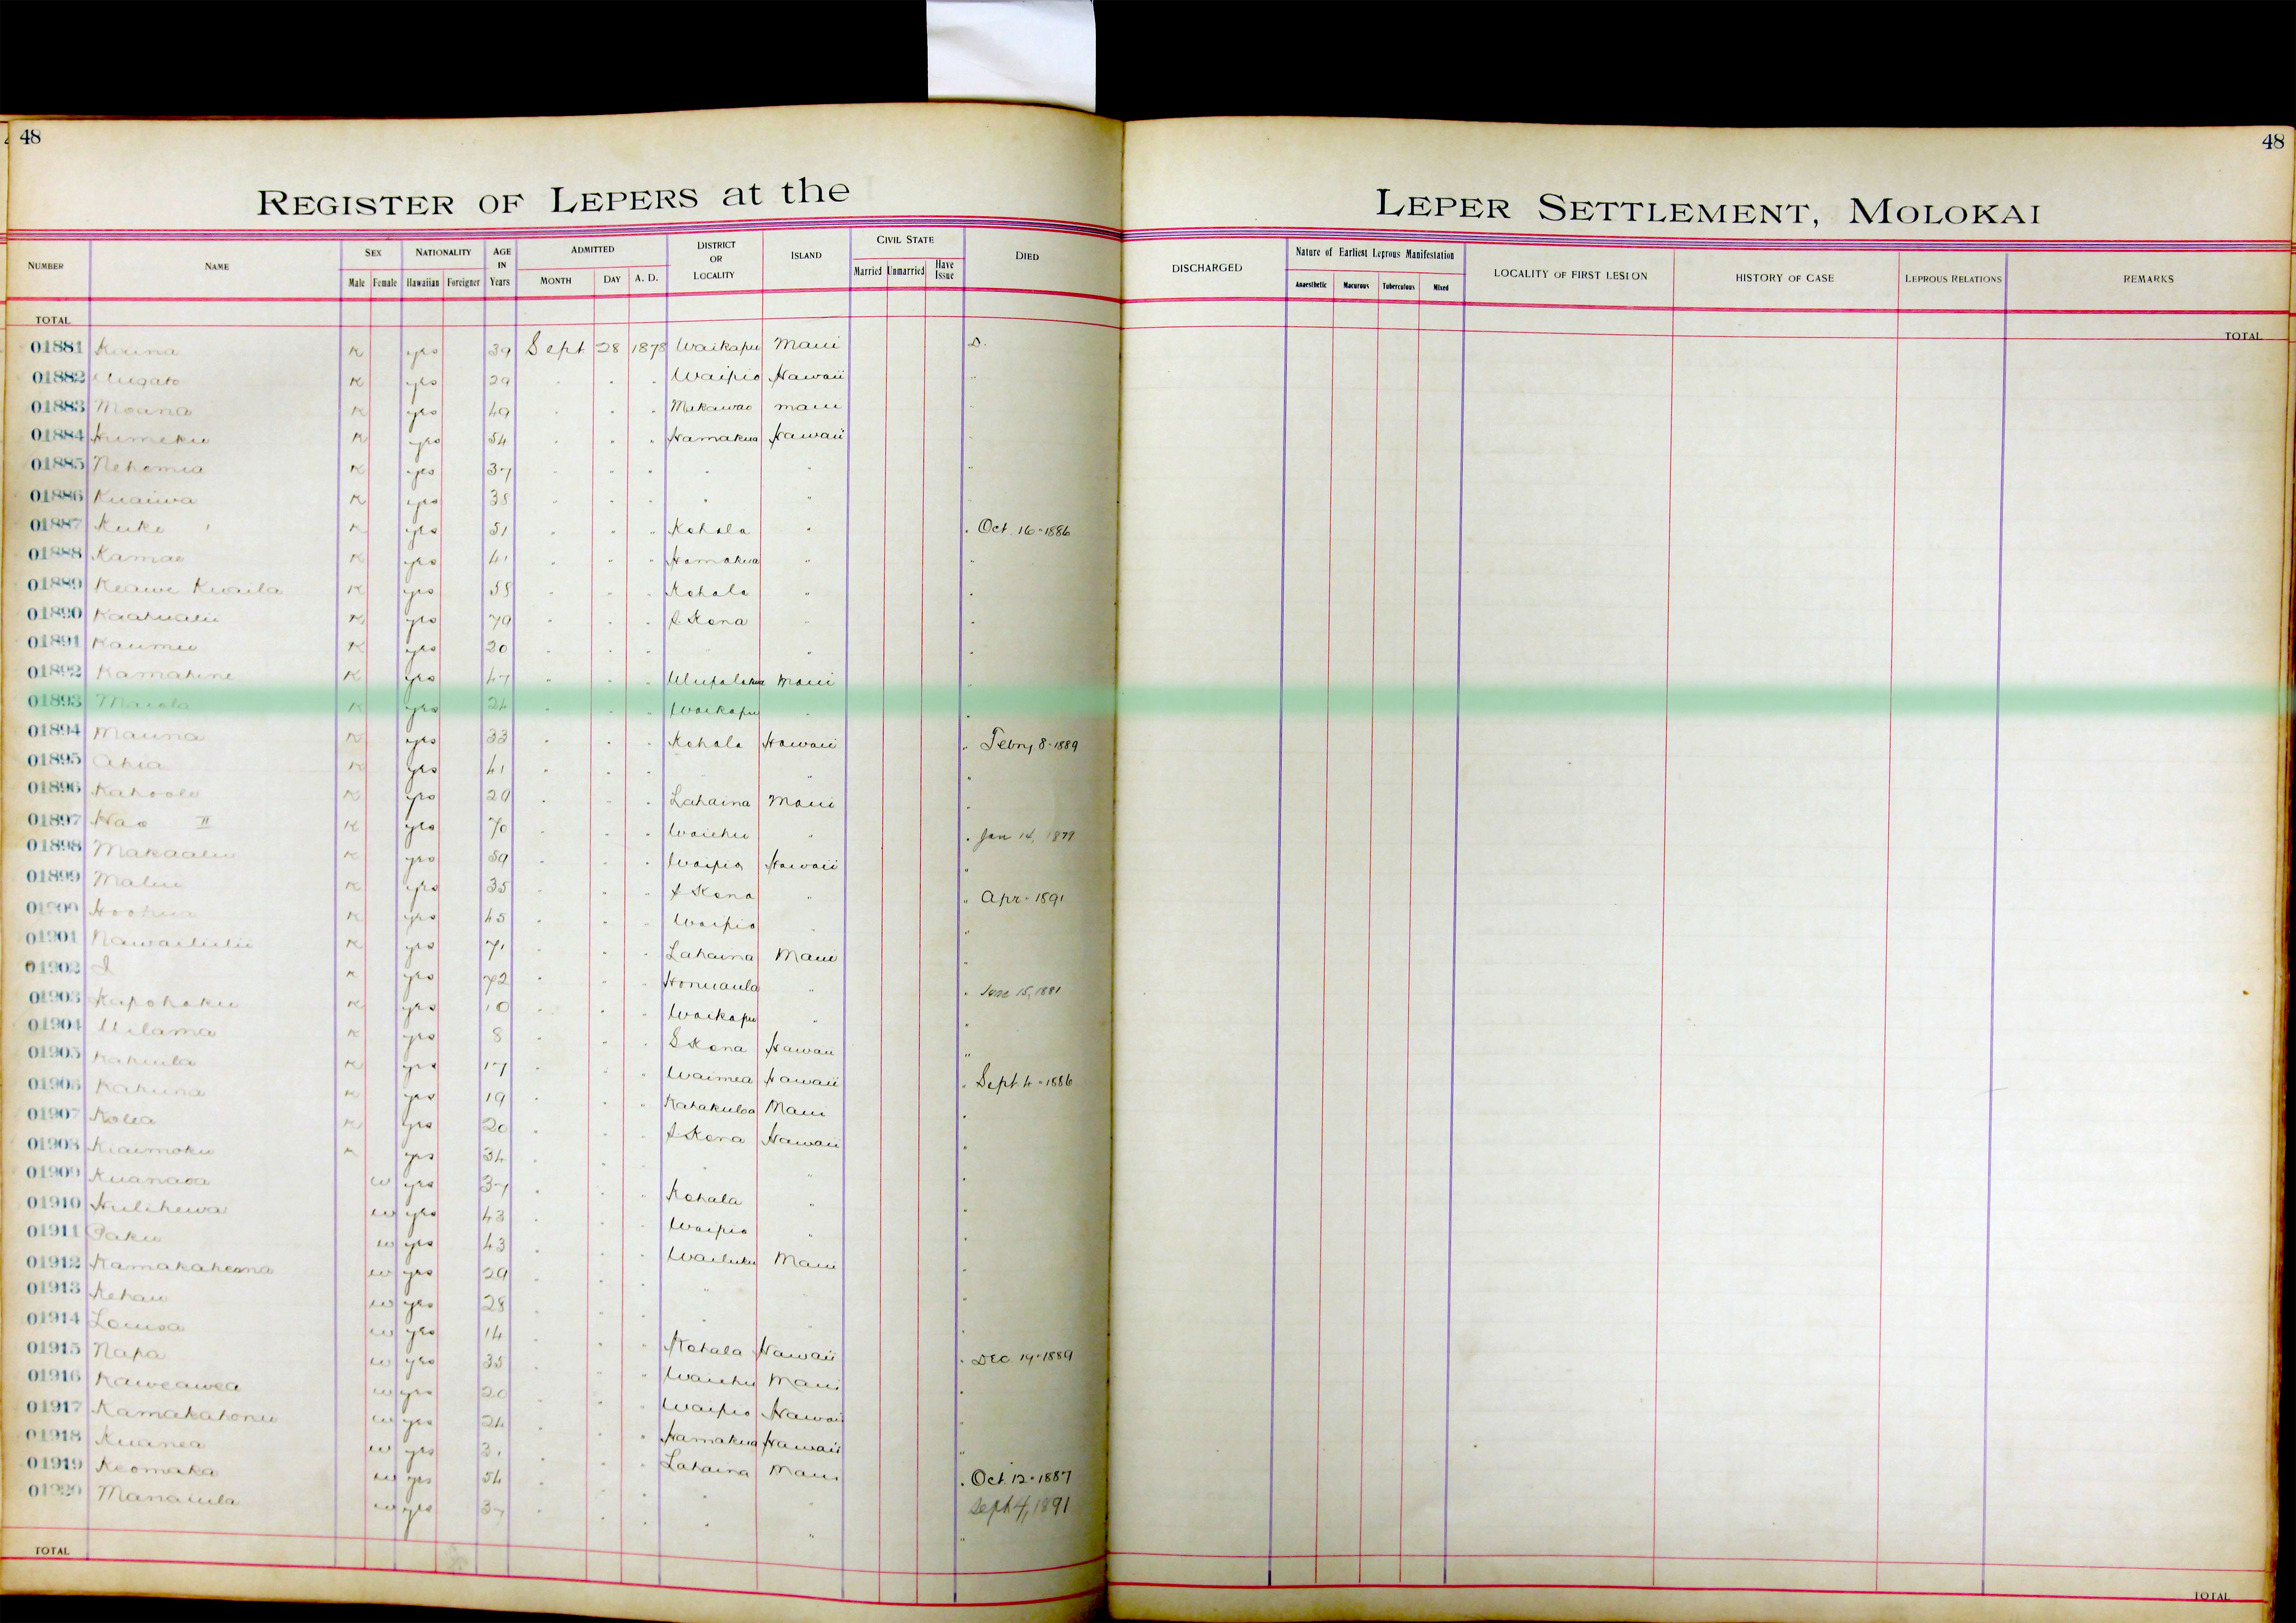 48
48
REGISTER OF LEPERS at the
LEPER SETTLEMENT, MOLOKAI
NUMBER NAME SEX NATIONALITY AGE IN Years ADMITTED DISTRICT OR LOCALITY ISLAND CIVIL STATE DIED
Male Female Hawaiian Foreigner MONTH DAY A. D. Married Unmarried Have Issue
DISCHARGED Nature of Earliest Leprous Manifestation LOCALITY OF FIRST LESION HISTORY OF CASE LEPROUS RELATIONS REMARKS
Anaesthetic Macurous Tuberculous Mixed
TOTAL
TOTAL
01881 K yes 39 Sept 28 1878 Waikapu Maui D.
01882 K yes 29 " " " Waipio Hawaii "
01883 Moana K yes 49 " " " Makawao Maui "
01884 Humeku K yes 54 " " " Hamakua Hawaii "
01885 Nehemia K yes 37 " " " " " "
01886 Kuaiwa K yes 38 " " " " " "
01887 Kuke K yes 51 " " " Kohala " " Oct. 16 - 1886
01888 Kamae K yes 41 " " " Hamakua " "
01889 Keawe Kuaila K yes 58 " " " Kohala " "
01890 Kaahualii K yes 79 " " " Kona " "
01891 Kaumu K yes 20 " " " " " "
01892 Kamahine K yes 47 " " " Ulupalakua Maui "
01893 Maiola K yes 24 " " " Waikapu " "
01894 Mauna K yes 33 " " " Kohala Hawaii " Febry 8 - 1889
01895 Ahia K yes 41 " " " " " "
01896 Kahoole K yes 29 " " " Lahaina Maui "
01897 Hao II K yes 70 " " " Waiehu " " Jan 14, 1879
01898 Makaalu K yes 59 " " " Waipio Hawaii "
01899 Malu K yes 35 " " " Kona " " Apr - 1891
01900 Hoohua K yes 45 " " " Waipio " "
01901 Nawailiilii K yes 71 " " " Lahaina Maui "
01902 I K yes 72 " " " Honuaula " " June 15, 1881
01903 Kapohaku K yes 10 " " " Waikapu " "
01904 Uilama K yes 8 " " " S Kona Hawaii "
01905 Kahiula K yes 17 " " " Waimea Hawaii " Sept. 4 - 1886
01906 Kahuna K yes 19 " " " Kahakuloa Maui "
01907 Kolea K yes 20 " " " Kona Hawaii "
01908 Kiaimoku K yes 34 " " " " " "
01909 Kuanaoa w yes 37 " " " Kohala " "
01910 Hulihewa w yes 43 " " " Waipio " "
01911 Paku w yes 43 " " " Wailuku Maui "
01912 Kamakaheana w yes 29 " " " " "
01913 Kehau w yes 28 " " " " "
01914 Louisa w yes 14 " " " Kohala Hawaii " Dec. 19 - 1889
01915 Napa w yes 35 " " " Waiehu Maui "
01916 Kaweawea w yes 20 " " " Waipio Hawaii "
01917 Kamakahonu w yes 24 " " " Hamakua Hawaii "
01918 Kuanea w yes 31 " " " Lahaina Maui " Oct. 12 - 1887
01919 Keomaka w yes 54 " " " " " Sept 4, 1891
01920 Manaiula w yes 37 " " " " " "
TOTAL
TOTAL